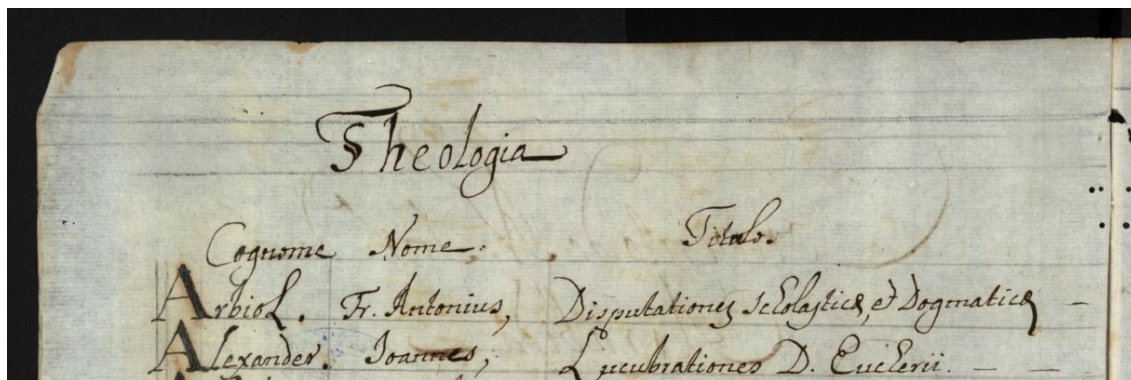 Theologia
Cognome Nome. Titolo.
Arbiol. Fr. Antonius, Disputationes scholasticæ, et Dogmaticæ —
Alexander. Joannes, Lucubrationes D. Eucherii. — —